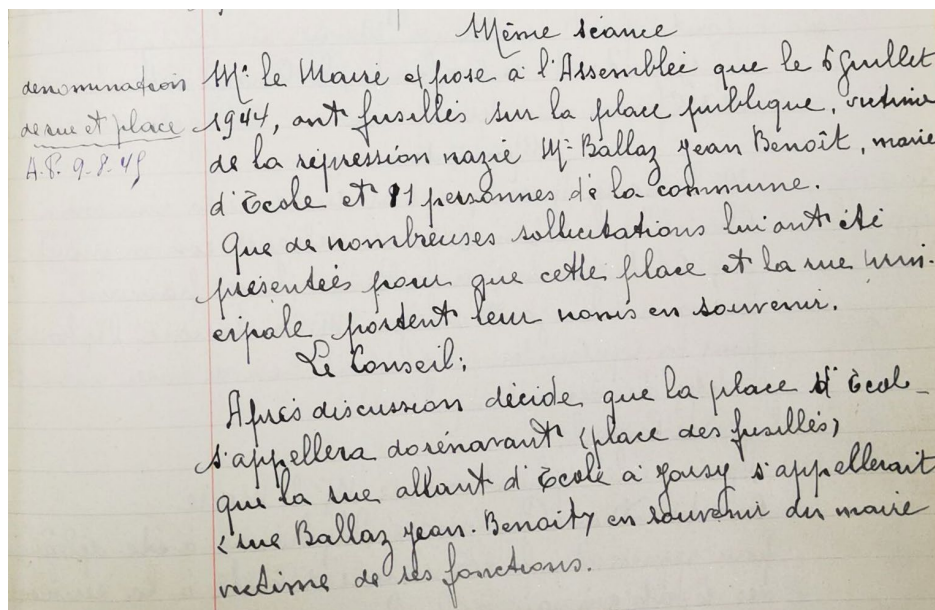 Même séance
denomination
de rue et place
A.P. 9-8-45
Mr le Maire expose à l'Assemblée que le 6 Juillet
1944, ont fusillés sur la place publique, victime
de la répression nazie Mr Ballaz Jean Benoît, maire
d'École et 11 personnes de la commune.
Que de nombreuses sollicitations lui ont été
présentées pour que cette place et la rue
cipale portent leur noms en souvenir.
Le Conseil;
Après discussion décide que la place d'Ecole
s'appellera dorénavant (place des fusillés)
que la rue allant d'Ecole à Jarsy s'appellerait
< rue Ballaz Jean-Benoit> en souvenir du maire
victime de ses fonctions.